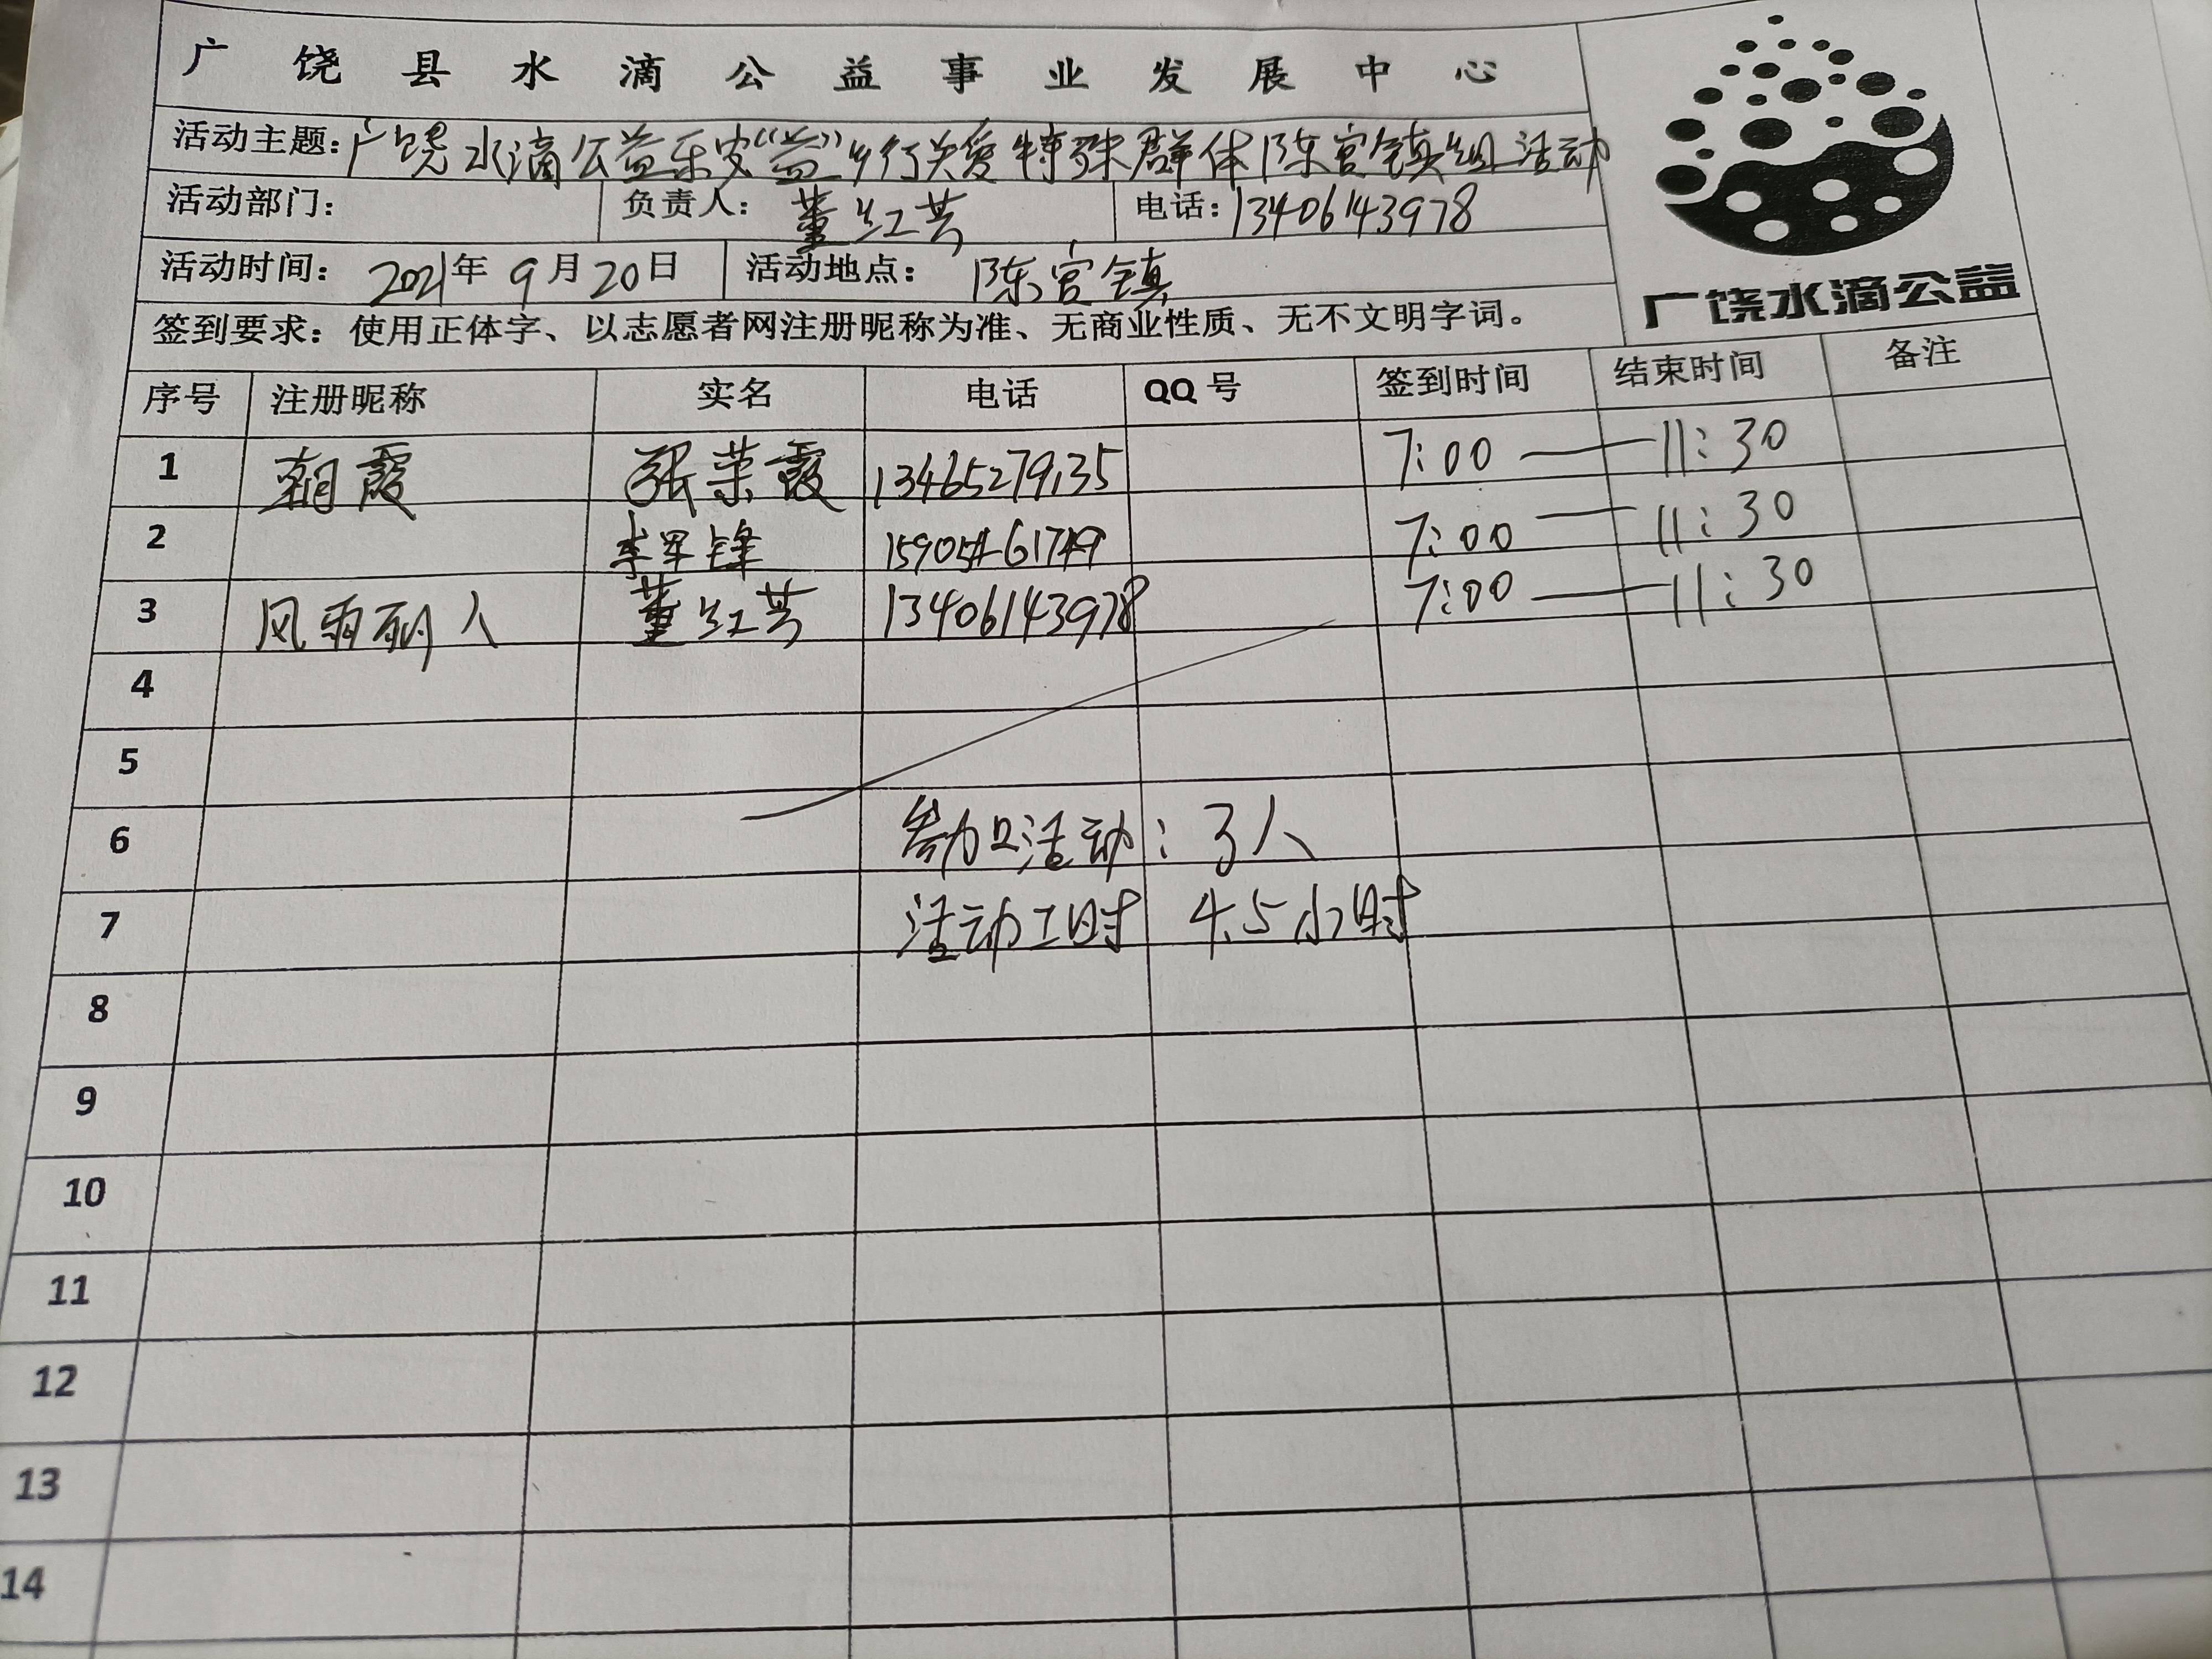 广饶县水滴公益事业发展中心
活动主题：广饶水滴公益乐安“益”乡行关爱特殊群体陈官镇组活动
活动部门： 负责人：董红芸 电话：13406143978
活动时间：2021年9月20日 活动地点：陈官镇
广饶水滴公益
签到要求：使用正体字、以志愿者网注册昵称为准、无商业性质、无不文明字词。
序号 注册昵称 实名 电话 QQ号 签到时间 结束时间 备注
1 朝霞 张荣霞 13465279135 7:00 — 11:30
2 李军锋 7:00 — 11:30
3 风雨丽人 董红芸 13406143978 7:00 — 11:30
4
5
6 参加活动：3人
7 活动工时 4.5小时
8
9
10
11
12
13
14